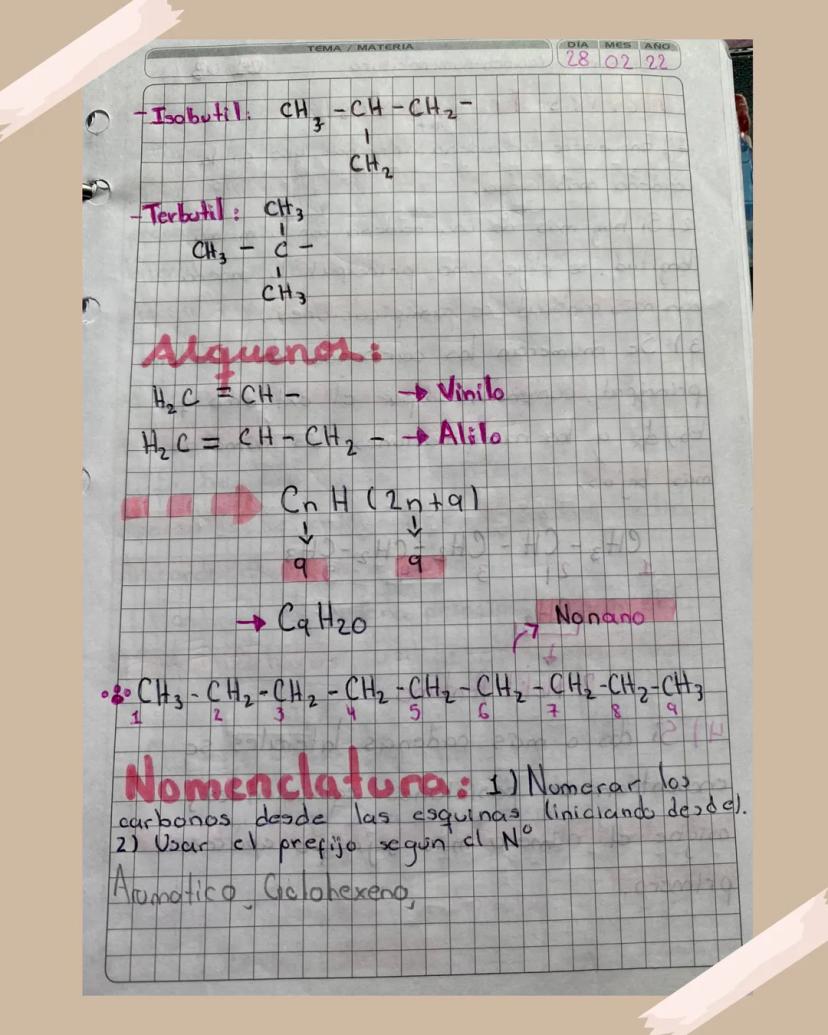 TEMA / MATERIA
DIA MES AÑO
28 02 22
-Isobutil: CH3 -CH -CH2-
CH2
-Terbutil: CH3
CH3 - C -
CH3
Alquenos:
H2C = CH - → Vinilo
H2C = CH - CH2 - → Alilo
CnH (2n+a)
↓ ↓
9 9
→ C9H20
Nonano
CH3 - CH2 - CH2 - CH2 - CH2 - CH2 - CH2 - CH2 - CH3
1 2 3 4 5 6 7 8 9
Nomenclatura: 1) Nomerar los
carbonos desde las esquinas (iniciando desde).
2) Usar el prefijo según el N°
Aromatico, Ciclohexeno,